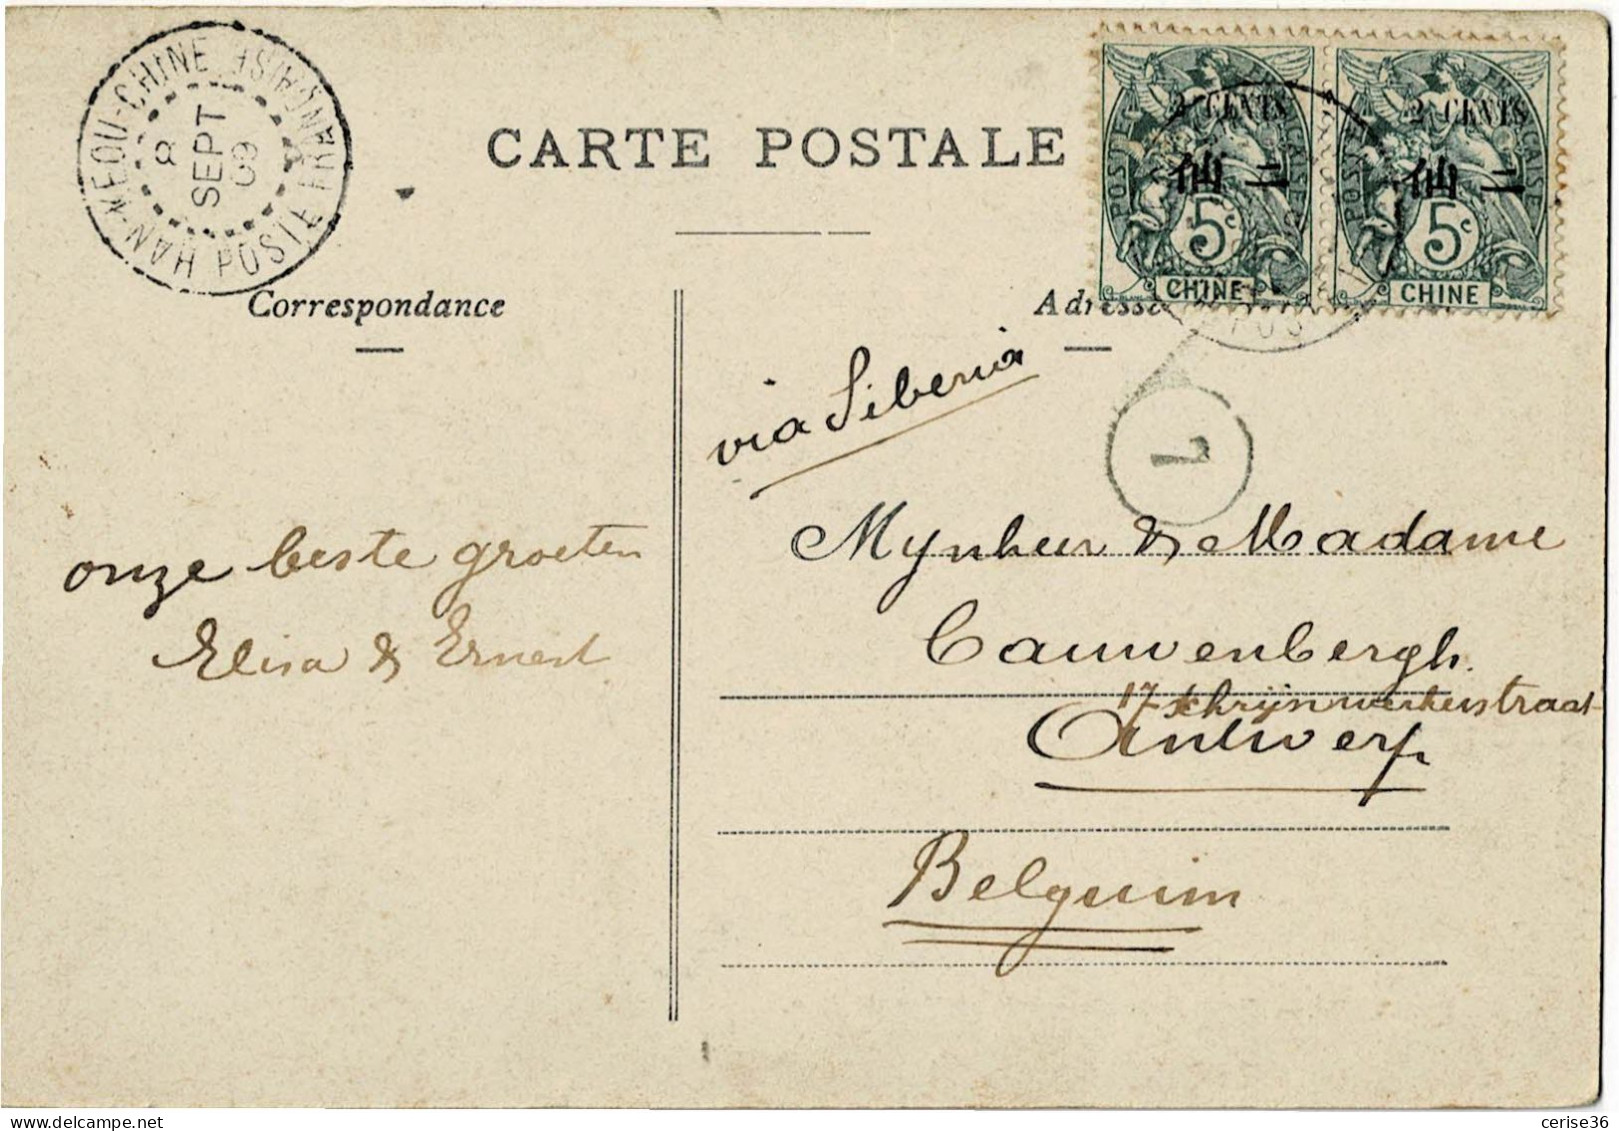 HAN-KEOU-CHINE POSTE FRANÇAISE
8
SEPT
09
CARTE POSTALE
POSTE FRANÇAISE
2 CENTS
仙 二
5c
CHINE
POSTE FRANÇAISE
2 CENTS
仙 二
5c
CHINE
Correspondance
Adresse
via Siberia
7
onze beste groeten
Elisa & Ernest
Mynheer & Madame
Cauwenbergh.
17 schrijnwerkerstraat
Antwerp
Belguim
cerise36